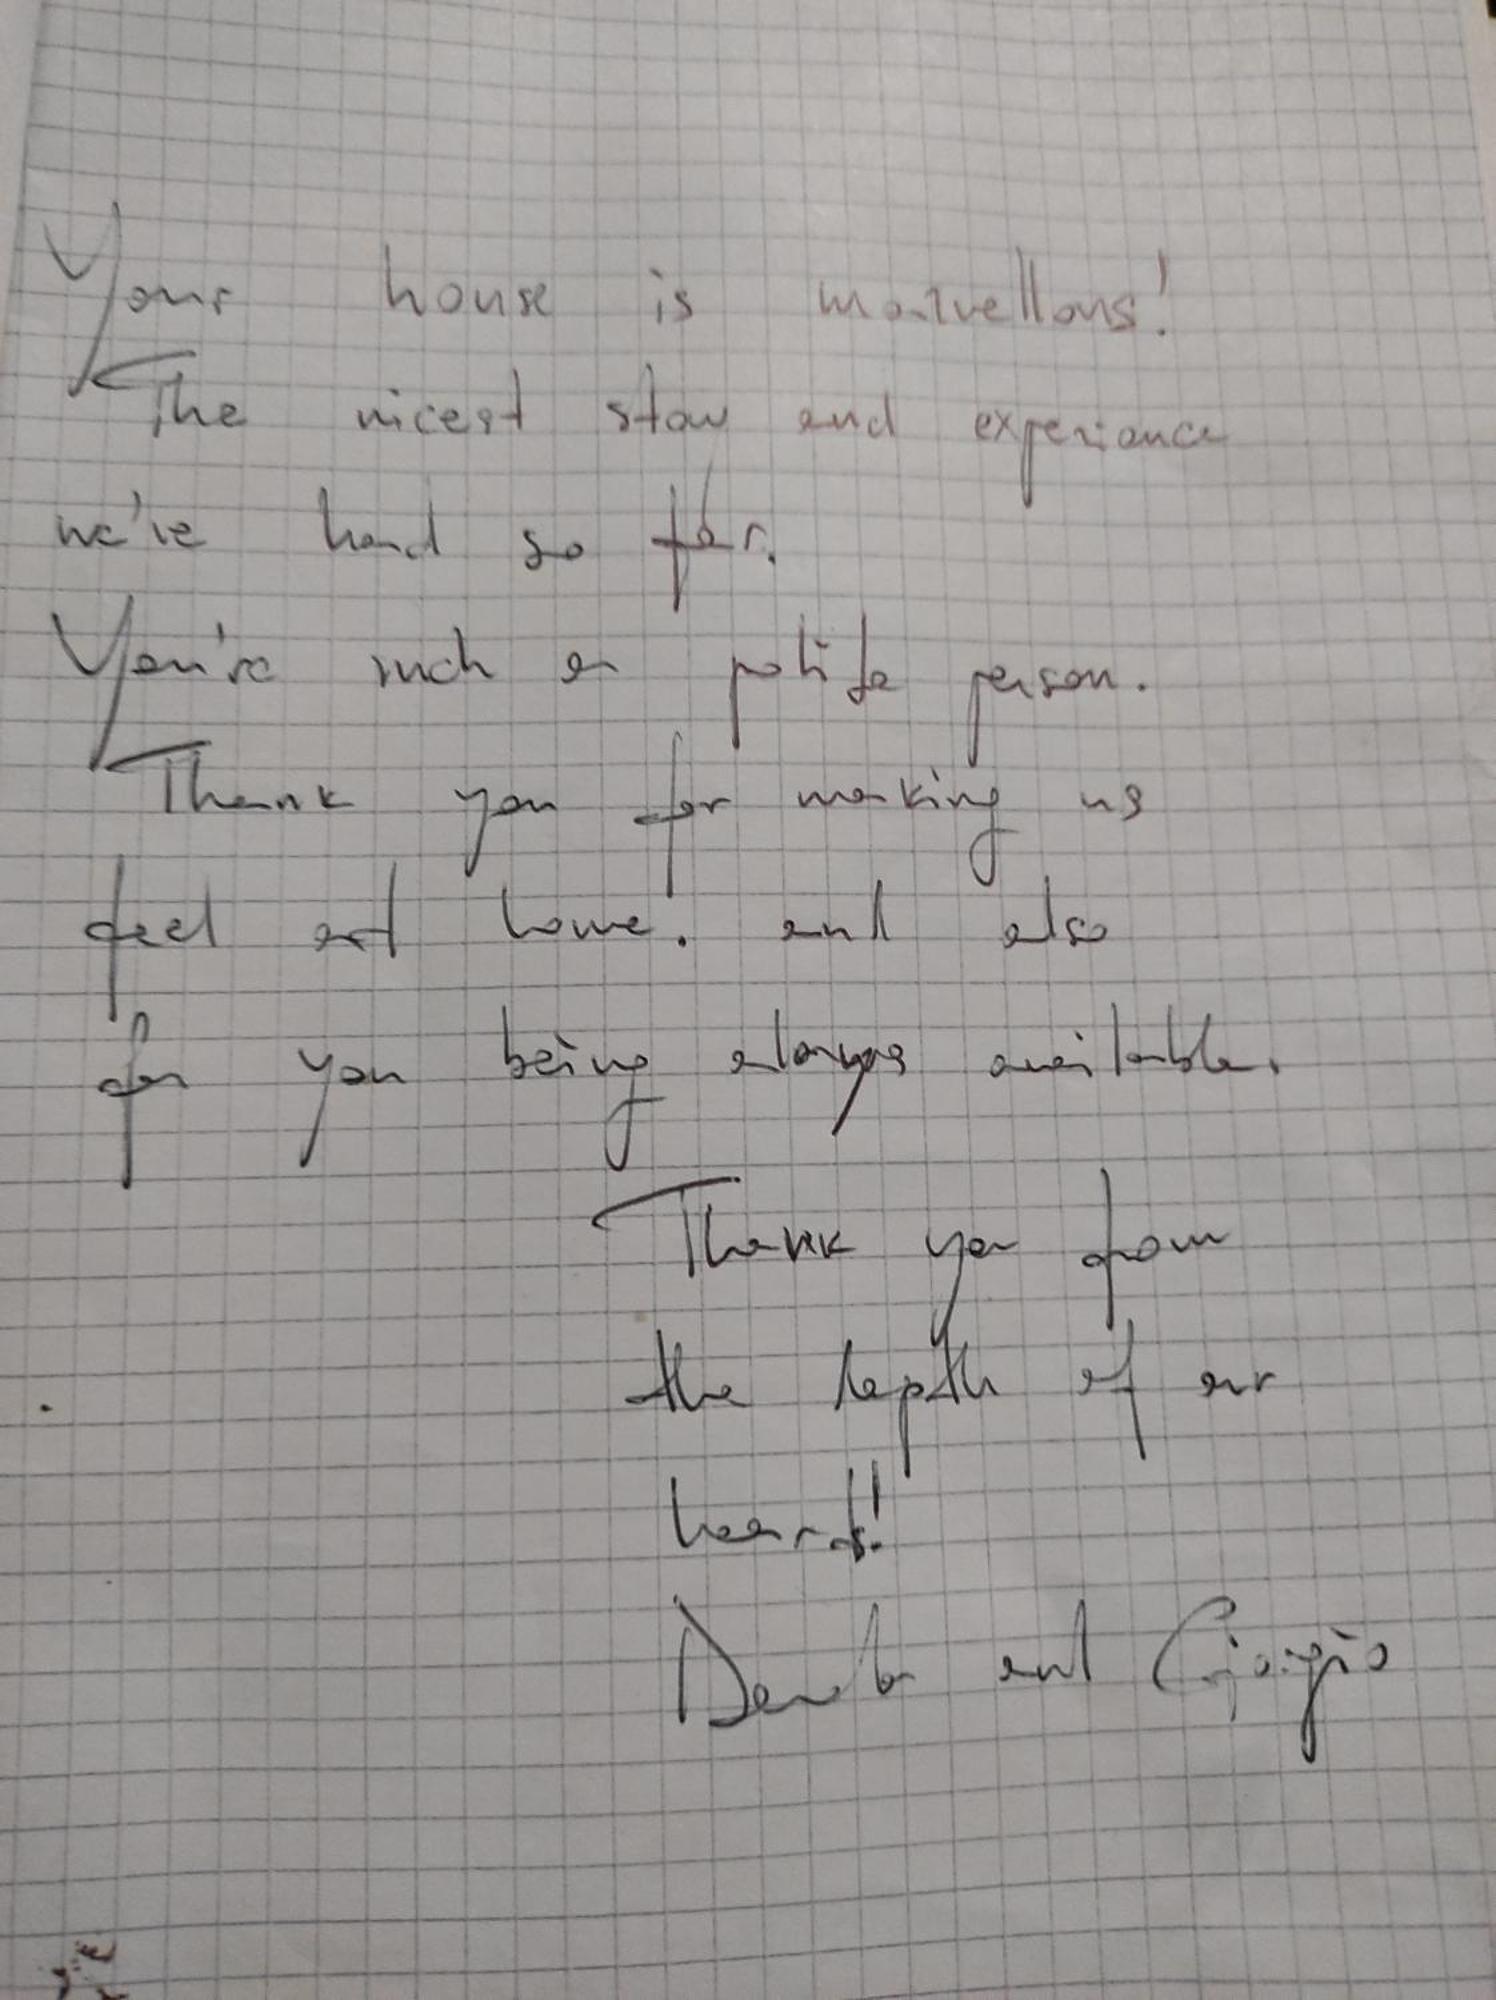 Your house is marvellous!
The nicest stay and experiance
we've had so far.
You're such a polite person.
Thank you for making us
feel at home. and also
for you being always available.
Thank you from
the depth of our
hearts!
and Giorgio